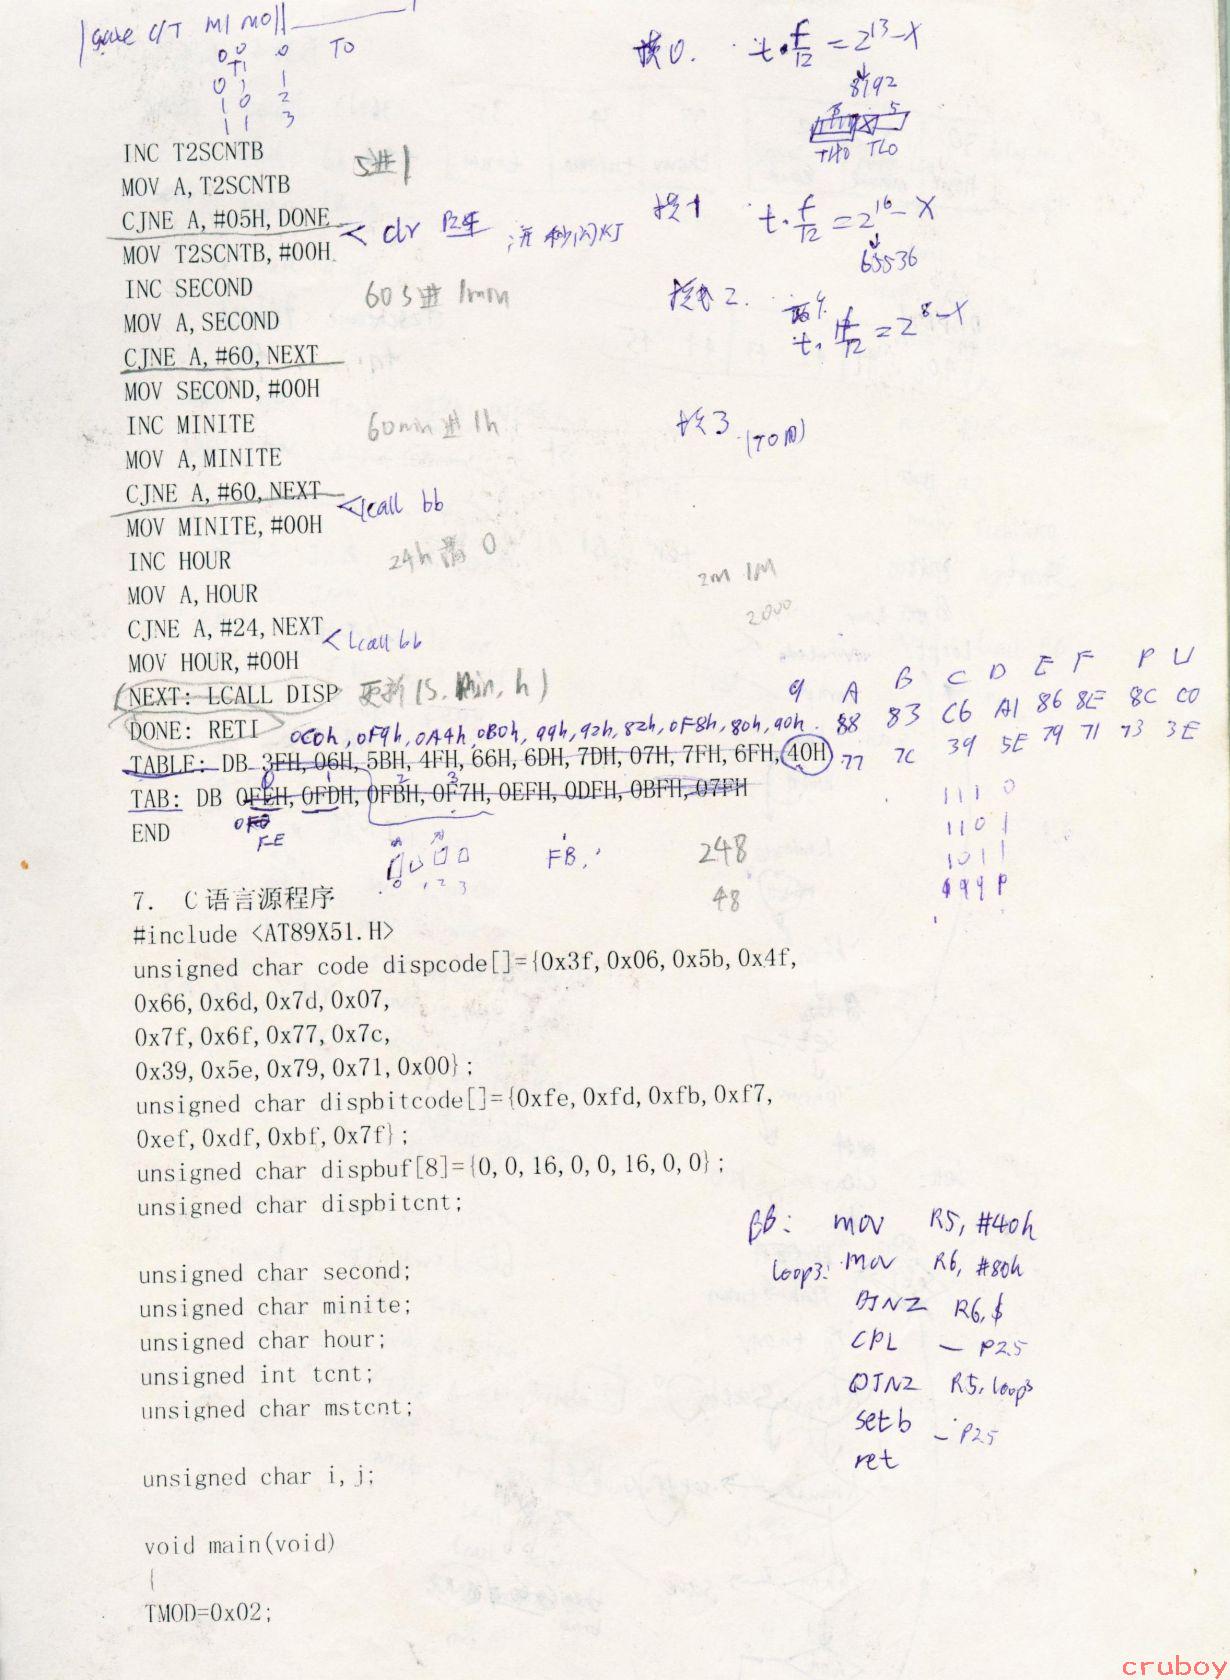 gate C/T M1 M0
0 0 0
T0
0 1 1
1 0 2
1 1 3
模0. t·f/12 = 2^13-X
8192
8 5
TH0 TL0
INC T2SCNTB
MOV A, T2SCNTB
5进1
CJNE A, #05H, DONE
< clr
秒闪灯
模1 t·f/12 = 2^16-X
65536
MOV T2SCNTB, #00H
INC SECOND
60s进1min
模2.
t·f/12 = 2^8-X
MOV A, SECOND
CJNE A, #60, NEXT
MOV SECOND, #00H
INC MINITE
60min进1h
模3 (T0用)
MOV A, MINITE
CJNE A, #60, NEXT
<lcall bb
MOV MINITE, #00H
INC HOUR
24h清0
2M 1M
2000
MOV A, HOUR
CJNE A, #24, NEXT
<lcall bb
MOV HOUR, #00H
NEXT: LCALL DISP
更新(s, min, h)
DONE: RETI
0C0h, 0F9h, 0A4h, 0B0h, 99h, 92h, 82h, 0F8h, 80h, 90h
9 A B C D E F P U
88 83 C6 A1 86 8E 8C C0
TABLE: DB 3FH, 06H, 5BH, 4FH, 66H, 6DH, 7DH, 07H, 7FH, 6FH, 40H
77 7C 39 5E 79 71 73 3E
TAB: DB 0FEH, 0FDH, 0FBH, 0F7H, 0EFH, 0DFH, 0BFH, 07FH
FE
END
0 1 2 3
FB,
248
48
1 1 1 0
1 1 0 1
1 0 1 1
7. C语言源程序
#include <AT89X51.H>
unsigned char code dispcode[]={0x3f, 0x06, 0x5b, 0x4f,
0x66, 0x6d, 0x7d, 0x07,
0x7f, 0x6f, 0x77, 0x7c,
0x39, 0x5e, 0x79, 0x71, 0x00};
unsigned char dispbitcode[]={0xfe, 0xfd, 0xfb, 0xf7,
0xef, 0xdf, 0xbf, 0x7f};
unsigned char dispbuf[8]={0, 0, 16, 0, 0, 16, 0, 0};
unsigned char dispbitcnt;
unsigned char second;
unsigned char minite;
unsigned char hour;
unsigned int tcnt;
unsigned char mstcnt;
unsigned char i, j;
void main(void)
{
TMOD=0x02;
BB: mov R5, #40h
loop3: mov R6, #80h
DJNZ R6, $
CPL P25
DJNZ R5, loop3
setb P25
ret
cruboy